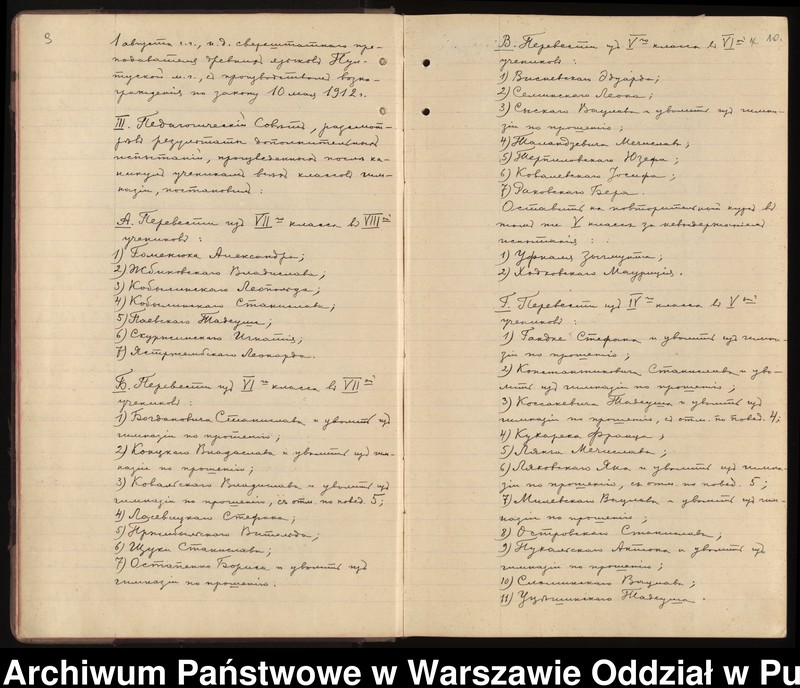 3
1 августа с.г., и.д. сверхштатнаго пре-
подавателя древнихъ языковъ Пул-
туской м.г., съ производствомъ возна-
гражденія по закону 10 мая 1912 г.
III. Педагогическій Совѣтъ, разсмот-
рѣвъ результаты дополнительныхъ
испытаній, произведенныхъ послѣ ка-
никулъ ученикамъ всѣхъ классовъ гим-
назіи, постановилъ:
А. Перевести изъ VII го класса въ VIII й
учениковъ:
1) Гоменюка Александра;
2) Жбиковскаго Владислава;
3) Кобылинскаго Леопольда;
4) Кобылинскаго Станислава;
5) Паевскаго Тадеуша;
6) Скуржинскаго Игнатія;
7) Ястржембскаго Леонарда.
Б. Перевести изъ VI го класса въ VII й
учениковъ:
1) Богдановича Станислава и уволить изъ
гимназіи по прошенію;
2) Концкаго Владислава и уволить изъ гим-
назіи по прошенію;
3) Ковальскаго Владислава и уволить изъ
гимназіи по прошенію, съ отм. по повед. 5;
4) Лосевицкаго Стефана;
5) Витольда;
6) Щуки Станислава;
7) Остапенко Бориса и уволить изъ
гимназіи по прошенію.
В. Перевести изъ V го класса въ VI й 4. 10.
учениковъ:
1) Висневскаго Эдуарда;
2) Семинскаго Леона;
3) Сыскаго Вацлава и уволить изъ гимна-
зіи по прошенію;
4) Мечислава;
5) Терпиловскаго Юзефа;
6) Ковалевскаго Іосифа;
7) Раковскаго Бера.
Оставить на повторительный курсъ въ
томъ же V классѣ за невыдержаніемъ
испытанія:
1) Зыгмунта;
2) Ходковскаго Мауриція.
Г. Перевести изъ IV го класса въ V й
учениковъ:
1) Гандке Стефана и уволить изъ гимна-
зіи по прошенію;
2) Константиновича Станислава и уво-
лить изъ гимназіи по прошенію;
3) Коссакевича Тадеуша и уволить изъ
гимназіи по прошенію, съ отм. по повед. 4;
4) Кухарска Франца;
5) Лянга Мечислава;
6) Ляховскаго Яна и уволить изъ гимна-
зіи по прошенію, съ отм. по повед. 5;
7) Милевскаго Вацлава и уволить изъ гим-
назіи по прошенію;
8) Островскаго Станислава;
9) Пукальскаго Антона и уволить изъ
гимназіи по прошенію;
10) Вацлава;
11) Тадеуша.
Archiwum Państwowe w Warszawie Oddział w Pu